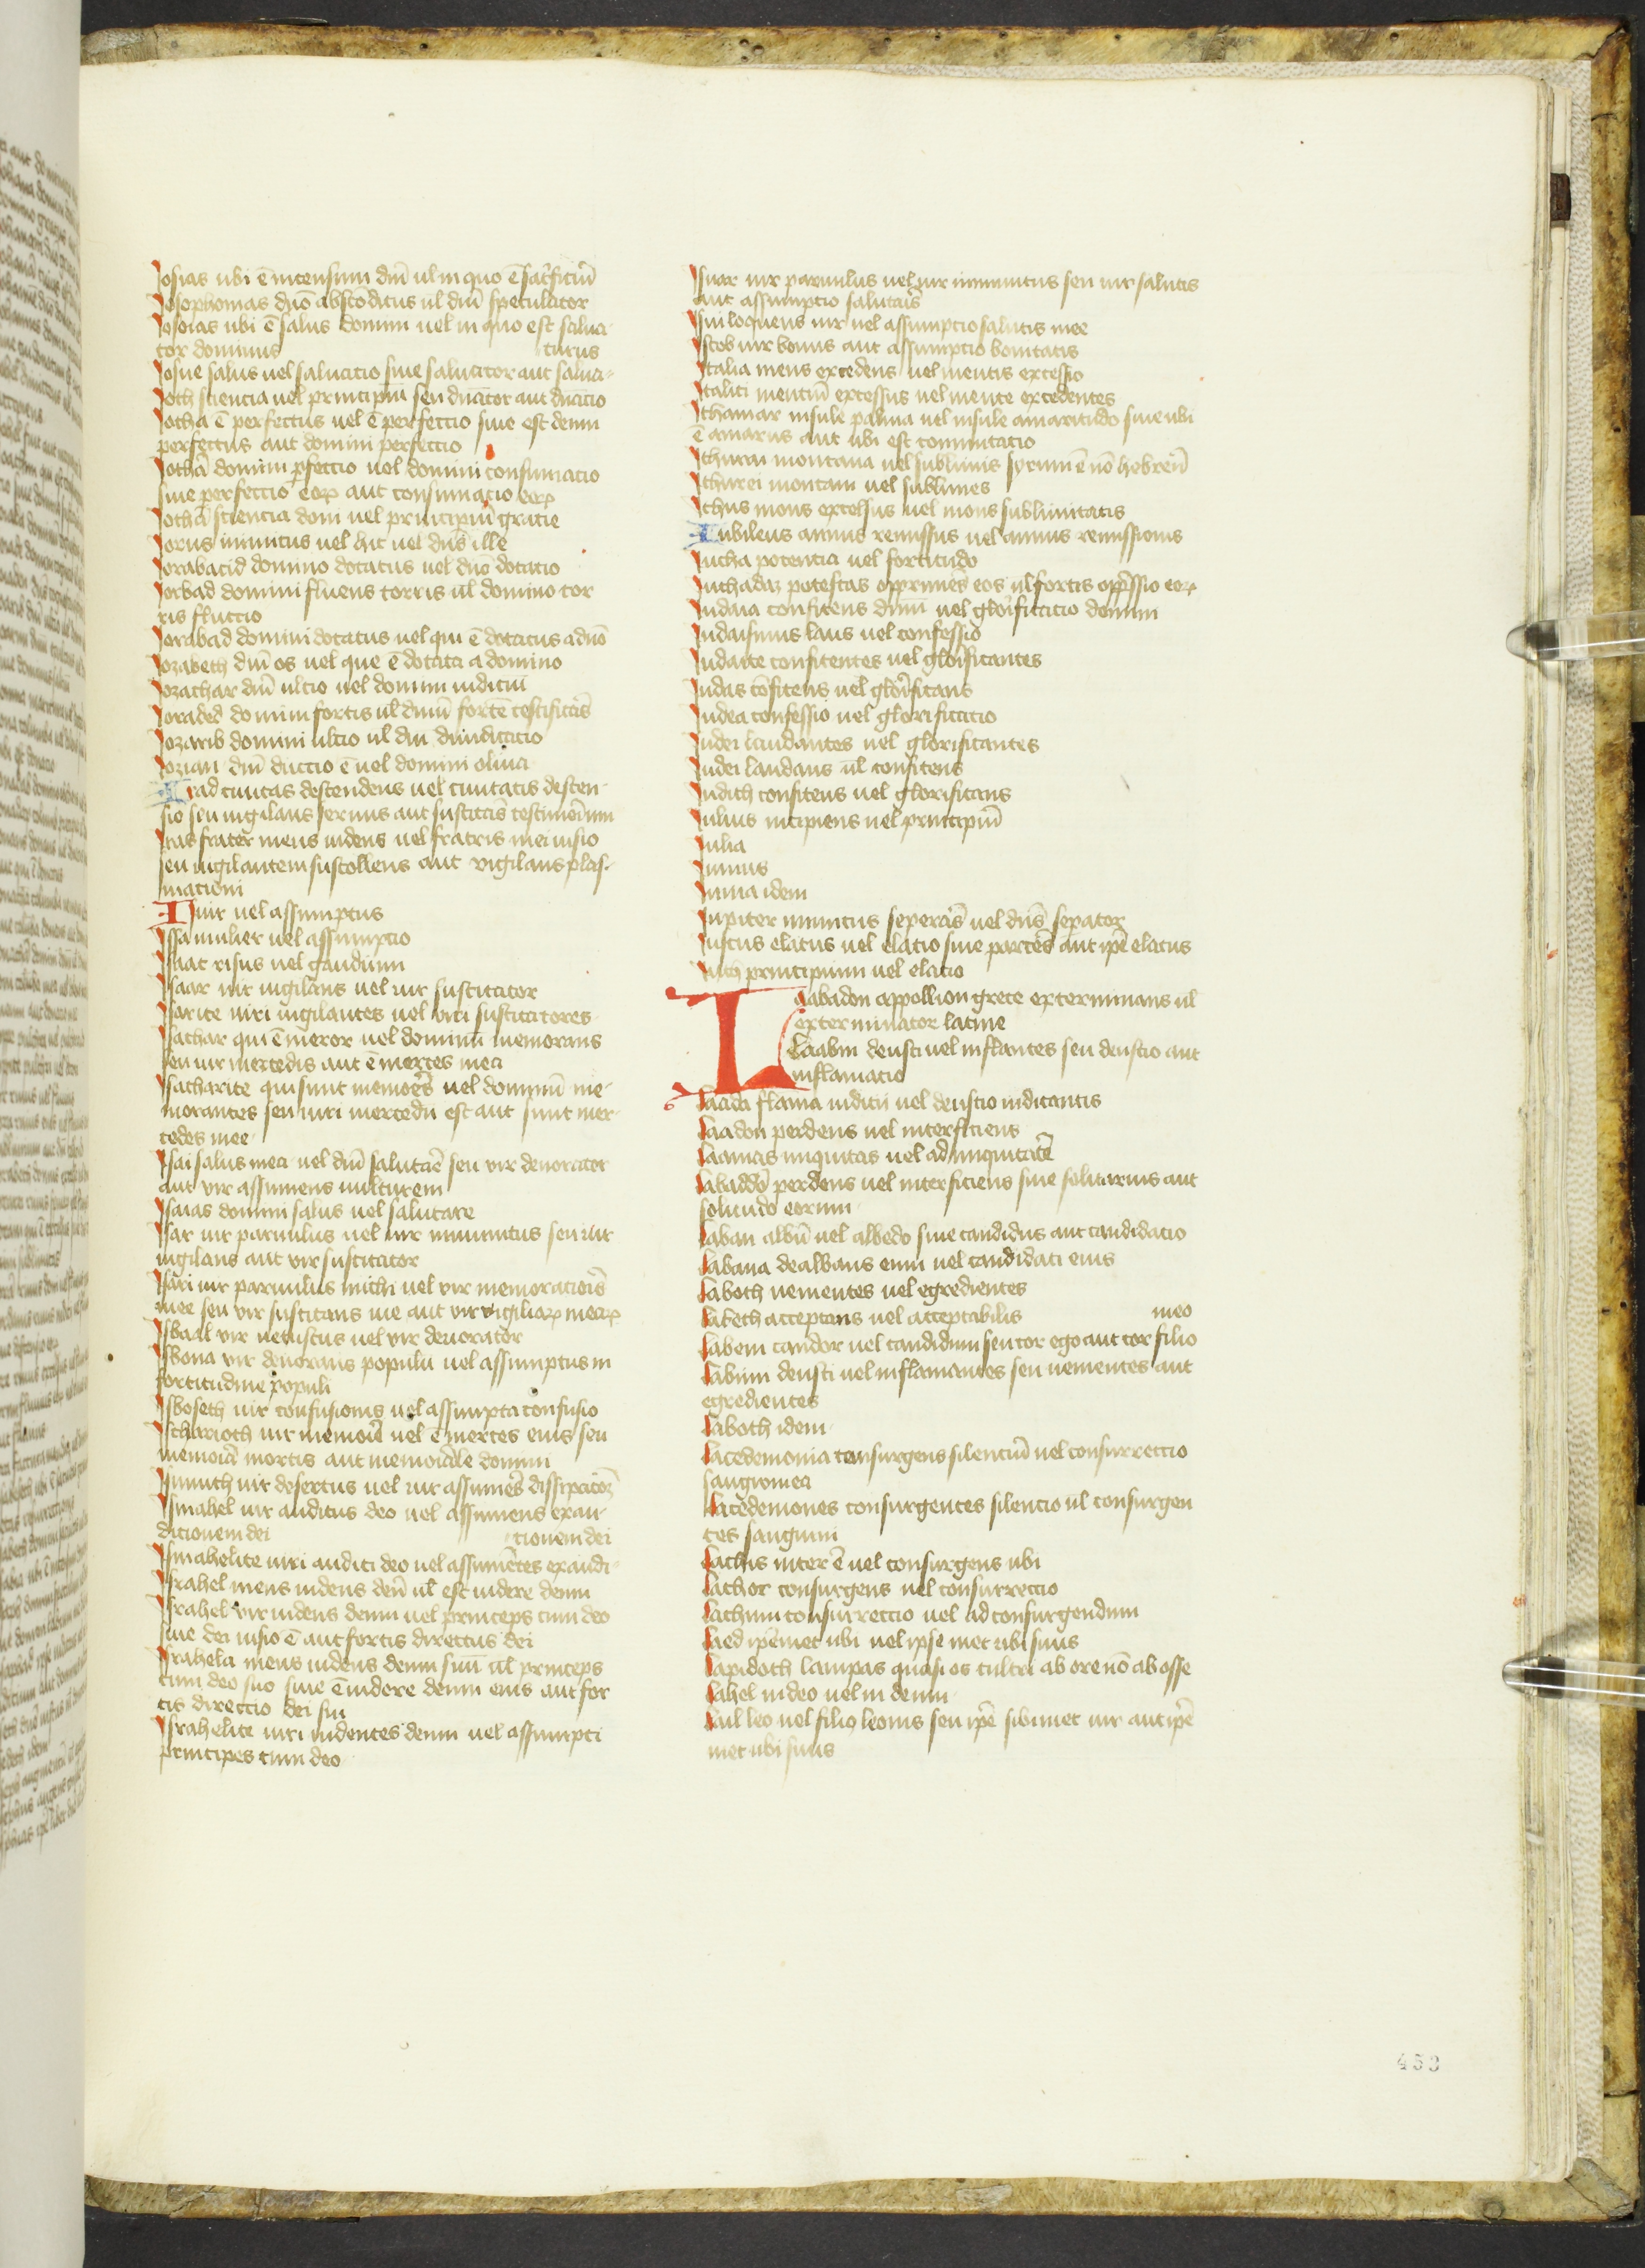 Josias ubi ē incensum dñi ul in quo ē sacͥficiū
Josophonias dño absconditus ul dñi speculator
Josoias ubi ē salus domini uel in quo est salua
tor dominus
Josue salus uel saluatio siue saluator aut salua-
turus
Joth sciencia uel principiū seu
Jotha ē perfectus uel ē perfectio siue est deum
perfectus aut domini perfectio
Jothā domini ꝑfectio uel domini consumacio
siue perfectio eoꝝ aut consumacio eoꝝ
Jothā sciencia doni uel principiū gratie
Jorus inuitus uel hic uel dñs ille
Jorabacid domino dotatus uel dño dotatio
Jorbad domini fluens torris ul domino tor
ris fluctio
Jorabad domini dotatus uel qui ē dotatus a dño
Jozabeth dñi os uel que ē dotata a domino
Jozachar dñi ultio uel domini iudiciū
Joraded domini fortis ul dnm̄ fortē testificās
Jozarib domini ultio ul dni diiudicatio
Jozian dñi ductio ē uel domini oliua
Irad ciuitas descendens uel ciuitatis descen-
sio seu uigilans seruus aut suscitās testimonium
Iras frater meus uidens uel fratris mei uisio
seu uigilantem suscollens aut vigilans plas-
macioni
Is uir uel assumptus
Issa mulier uel assumptio
Isaac risus uel gaudium
Isaar uir uigilans uel uir suscitator
Isarite uiri uigilantes uel viri suscitatores
Isachar qui ē meror uel dominū memorans
seu uir mercedis aut ē merces mea
Isacharite qui sunt memores uel dominū me-
morantes seu uiri mercedū est aut sunt mer-
cedes mee
Isai salus mea uel dñi salutaē seu vir deuorator
aut vir assumens uulturem
Isaias domini salus uel salutare
Isar uir paruulus uel uir inuitus seu uir
uigilans aut vir suscitator
Isari uir paruulus michi uel vir memorationis
mee seu vir suscitans me aut vir vigiliaꝝ meaꝝ
Isbaal vir uetustus uel vir deuorator
Isbona vir deuorans populū uel assumptus in
fortitudine populi
Isboseth uir confusionis uel assumpta confusio
Ischarioth uir memorie uel ē merces eius seu
memoria mortis aut memoriale domini
Ismuth uir desertus uel uir assumēs dissipatoꝝ
Ismahel uir auditus deo uel assumens exau-
ditionem dei
Ismahelite uiri auditi deo uel assumētes exaudi-
tionem dei
Israhel mens uidens deū ul est uidere deum
Israhel vir uidens deum uel princeps cum deo
siue dei uisio ē aut fortis directus dei
Israhela mens uidens deum suū ul princeps
cum deo suo siue ē uidere deum eius aut for
tis directio dei sui
Israhelite uiri uidentes deum uel assumpti
principes cum deo
Isuar uir paruulus uel uir inuitus seu uir salutis
aut assumptio salutaris
Isui loquens uir uel assumptio salutis mee
Iscob uir bonus aut assumptio bonitatis
Italia mens excedens uel mentis excessio
Italici mentiū excessus uel mente excedentes
Ithamar insule palma uel insule amaritudo siue ubi
ē amarus aut ubi est commutatio
Ithurai montana uel sublimis syrum ē nō hebreū
Ithurei montani uel sublimes
Ithus mons excelsus uel mons sublimitatis
Iubileus annus remissus uel annus remissionis
Iucha potentia uel fortitudo
Iuchadaz potestas opprimēs eos ul fortis opp̄ssio eoꝝ
Iudaia confitens dnm̄ uel glorificatio domini
Iudaismus laus uel confessio
Iudaite confitentes uel glorificantes
Iudas cōfitens uel glorificans
Iudea confessio uel glorificatio
Iudei laudantes uel glorificantes
Iudei laudans ul confitens
Iudith confitens uel glorificans
Iulius incipiens uel principiū
Iulia
Iunius
Iunia idem
Iupiter inuitus seperās uel dñs sepator
Iustus elatus uel elatio siue parcēs aut ipē elatus
Iuth principium uel elatio
Laabadon appollion grece exterminans ul
exterminator latine
Laabin deusti uel inflantes seu deustio aut
inflamatio
Laada flama iudicii uel deustio iudicantis
Laadon perdens uel interficiens
Laamas iniquitas uel ad iniquitatē
Labaddō perdens uel interficiens siue solitarius aut
solitudo eorum
Laban albū uel albedo siue candidus aut candidatio
Labana dealbans eum uel candidati eius
Laboth uementes uel egredientes
Labeth acceptans uel acceptabilis
meo
Labem candor uel candidum seu cor ego aut cor filio
Labum deusti uel inflamantes seu uementes aut
egredientes
Laboth idem
Lacedemonia consurgens silenciū uel consurrectio
sanguinea
Lacedemones consurgentes silencio ul consurgen
tes sanguini
Lachis inter ē uel consurgens ubi
Lachor consurgens uel consurrectio
Lachum consurrectio uel ad consurgendum
Laed ipēmet ubi uel ipse met ubi suus
Lapidoth lampas quasi os cultri ab ore nō ab osse
Lahel in deo uel in deum
Lail leo uel filiꝰ leonis seu ipē sibimet uir aut ipē
met ubi suus
453